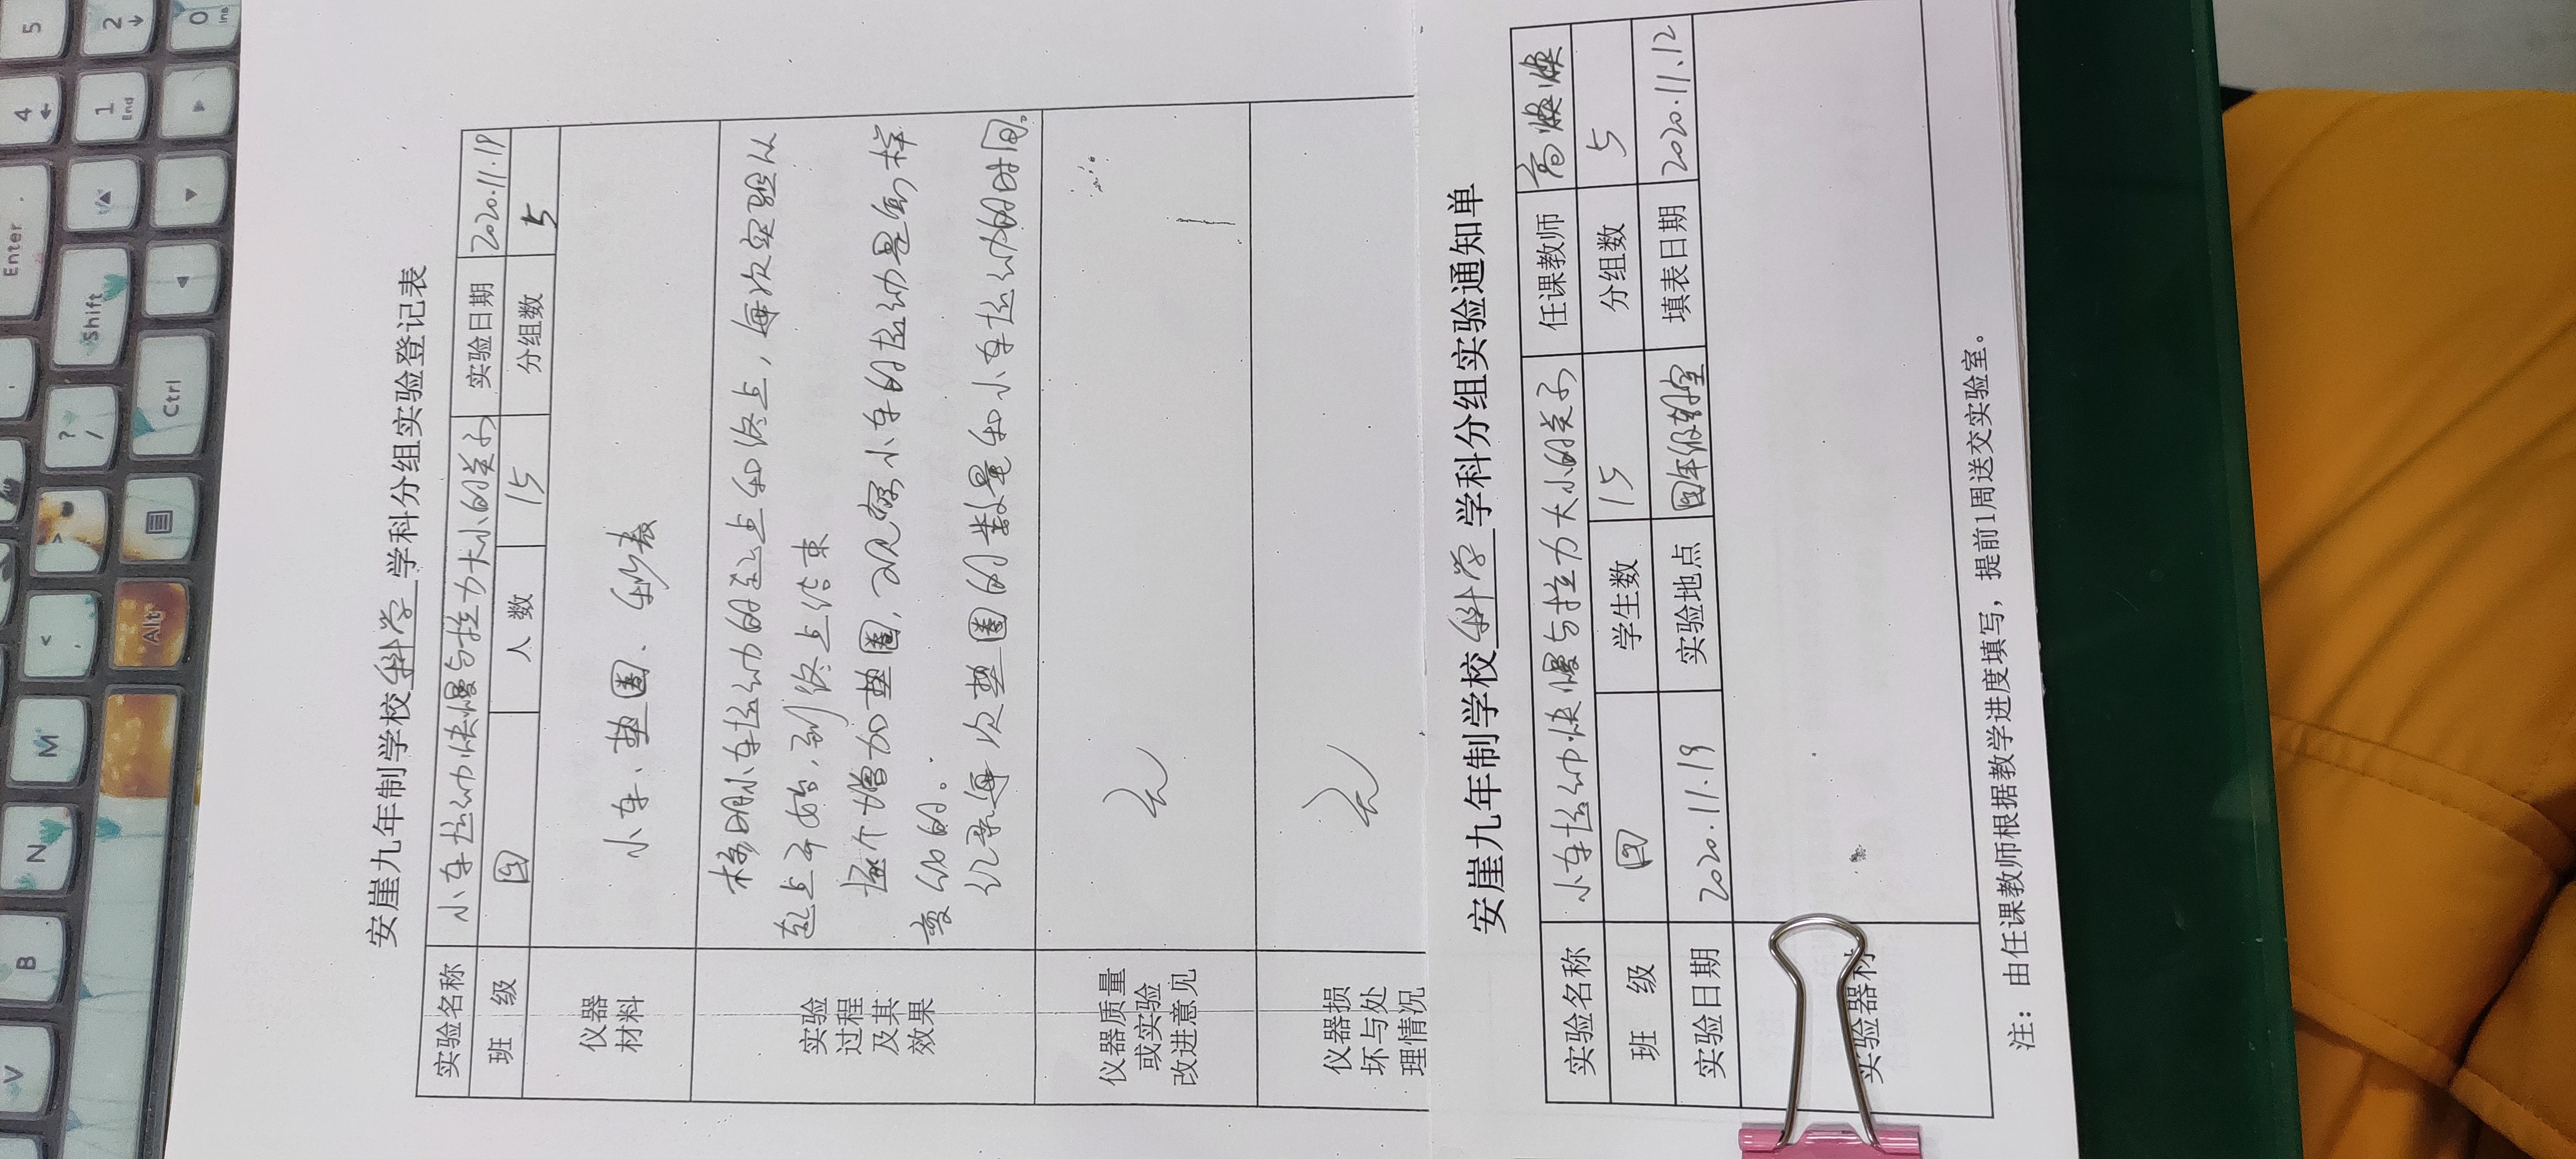 安崖九年制学校科学学科分组实验登记表
实验名称 小车运动快慢与拉力大小的关系 实验日期 2020.11.19
班 级 四 人 数 15 分组数 5
仪器
材料
小车、垫圈、秒表
实验
过程
及其
效果
标明小车运动的起点和终点，每次实验从
起点开始，到终点结束
逐个增加垫圈，观察小车的运动是怎样
变化的。
记录每次垫圈的数量和小车运动的时间。
仪器质量
或实验
改进意见
无
仪器损
坏与处
理情况
无
安崖九年制学校科学学科分组实验通知单
实验名称 小车运动快慢与拉力大小的关系 任课教师 高焕焕
班 级 四 学生数 15 分组数 5
实验日期 2020.11.19 实验地点 四年级教室 填表日期 2020.11.12
实验器材
注：由任课教师根据教学进度填写，提前1周送交实验室。
5
4
Enter
2
1
End
0
Ins
Shift
Ctrl
?
/
>
.
<
,
Alt
M
N
B
V